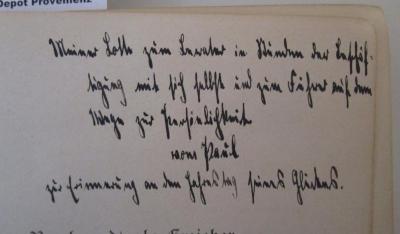 Depot Provenienz
Meiner Lotte zum Berater in Stunden der Beschäf-
tigung mit sich selbst und zum Führer auf dem
Wege zur Persönlichkeit
vom Paul
zur Erinnerung an den Jahrestag seines Glückes.